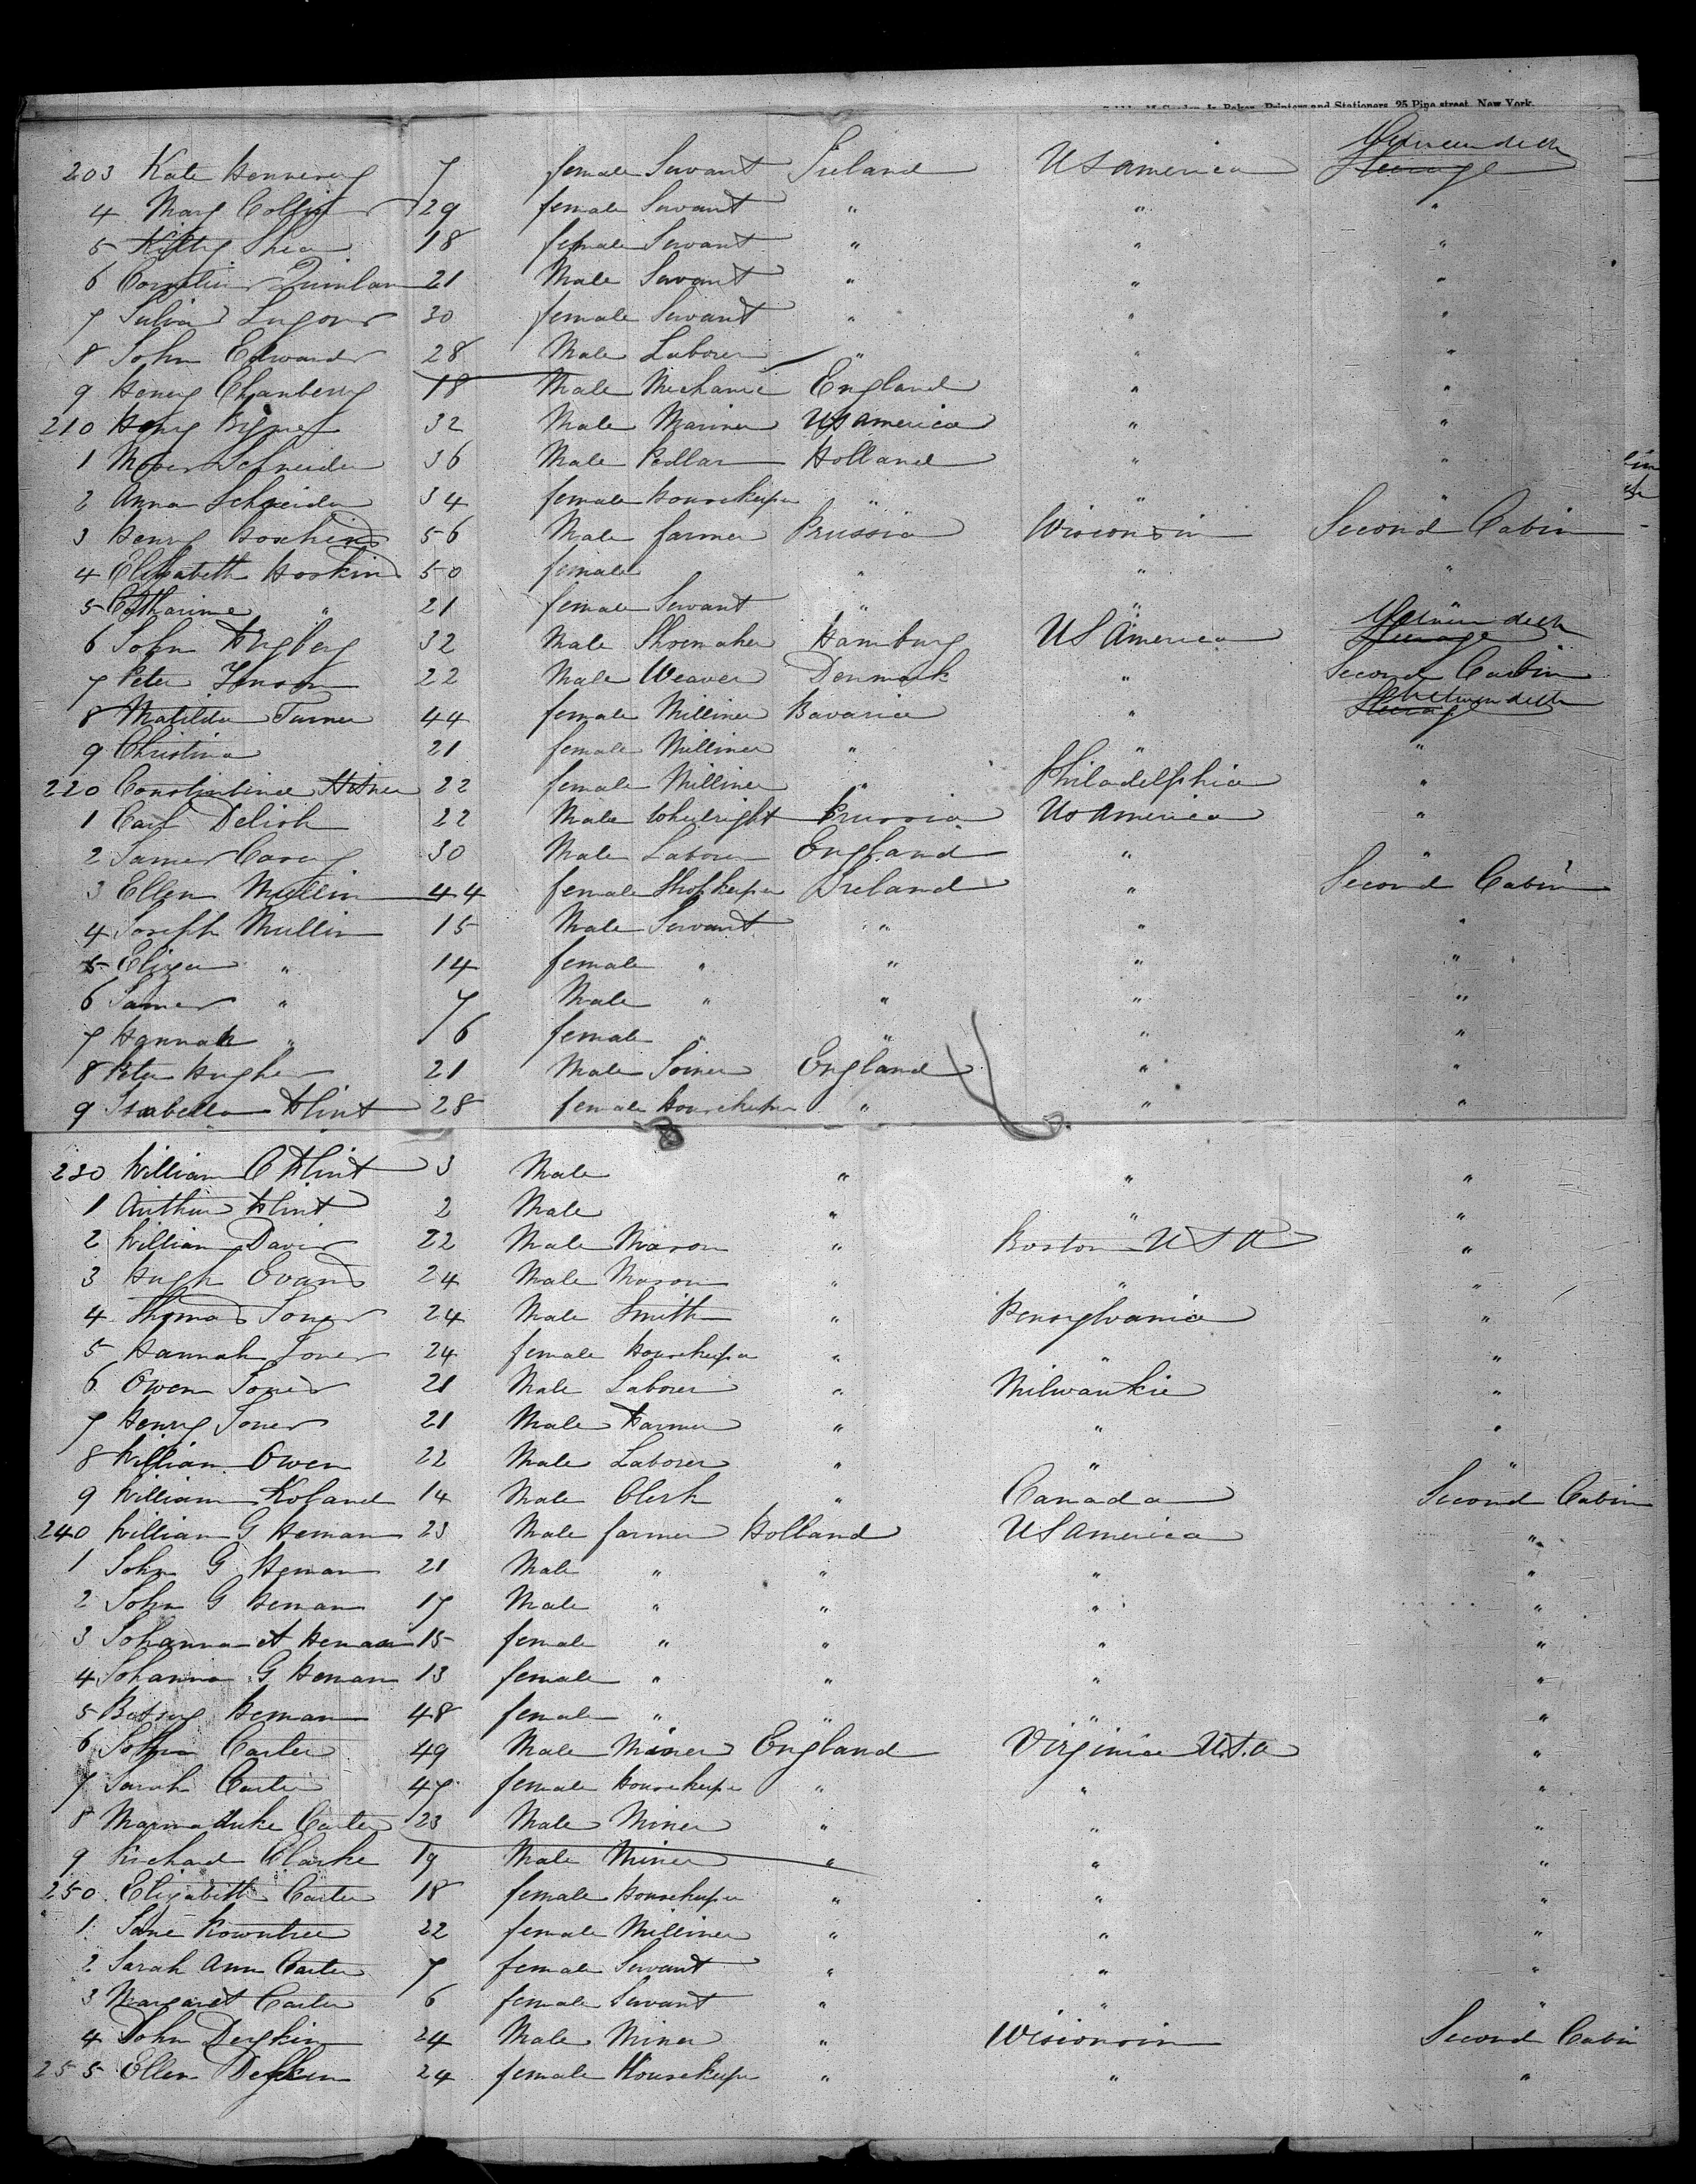 Printers and Stationers, 25 Pine street, New York.
203 Kate Hennesey 7 female Servant Ireland US america Between deck Steerage
4 Mary Collins 29 female Servant " " "
5 Kitty Shea 18 female Servant " " "
6 Cornelius Quinlan 21 Male Servant " " "
7 Julia 30 female Servant " " "
8 John Edwards 28 Male Laborer " " "
9 Henry Chanberry 18 Male Mechanic England " "
210 Henry 32 Male Mariner US america " "
1 Schneider 36 Male Pedlar Holland " "
2 Anna Schneider 34 female Housekeeper " " "
3 Henry Hoskins 56 Male farmer Prussia Wisconsin Second Cabin
4 Elizabeth Hoskins 50 female " " "
5 Catharine " 21 female Servant " "
6 John 32 Male Shoemaker Hamburg US America Between deck Steerage
7 Peter Jenson 22 Male Weaver Denmark " Second Cabin
8 Matilda Turner 44 female Milliner Bavaria " Between deck Steerage
9 Christina 21 female Milliner " " "
220 22 female Milliner " Philadelphia "
1 Carl Delish 22 Male Wheelright Prussia Us America "
2 James Carey 30 Male Laborer England " "
3 Ellen Mullin 44 female Shopkeeper Ireland " Second Cabin
4 Joseph Mullin 15 Male Servant " " "
5 Eliza " 14 female " " " "
6 James " 7 Male " " " "
7 Hannah " 6 female " " " "
8 Peter Hughes 21 Male Joiner England " "
9 Isabella Flint 28 female Housekeeper " " "
230 William C Flint 3 Male " " "
1 Arthur Flint 2 Male " " "
2 William Davis 22 Male Mason " Boston USA "
3 Hugh Evans 24 Male Mason " " "
4 Thomas Jones 24 Male Smith " Pensylvania "
5 Hannah Jones 24 female Housekeeper " " "
6 Owen Jones 21 Male Laborer " Milwaukie "
7 Henry Jones 21 Male Farmer " " "
8 William Owen 22 Male Laborer " " "
9 William Roland 14 Male Clerk " Canada Second Cabin
240 William G Heman 23 Male farmer Holland US America "
1 John G Heman 21 Male " " " "
2 John G Heman 17 Male " " " "
3 Johanna A Heman 15 female " " " "
4 Johanna G Heman 13 female " " " "
5 Betsey Heman 48 female " " " "
6 John Carter 49 Male Miner England Virginia U.S.a "
7 Sarah Carter 47 female Housekeeper " " "
8 Marmaduke Carter 23 Male Miner " " "
9 Richard Clarke 19 Male Miner " " "
250 Elizabeth Carter 18 female Housekeeper " " "
1 Jane Rowntree 22 female Milliner " " "
2 Sarah Ann Carter 7 female Servant " " "
3 Margaret Carter 6 female Servant " " "
4 John 24 Male Miner " Wisconsin Second Cabin
255 Ellen 24 female Housekeeper " " "